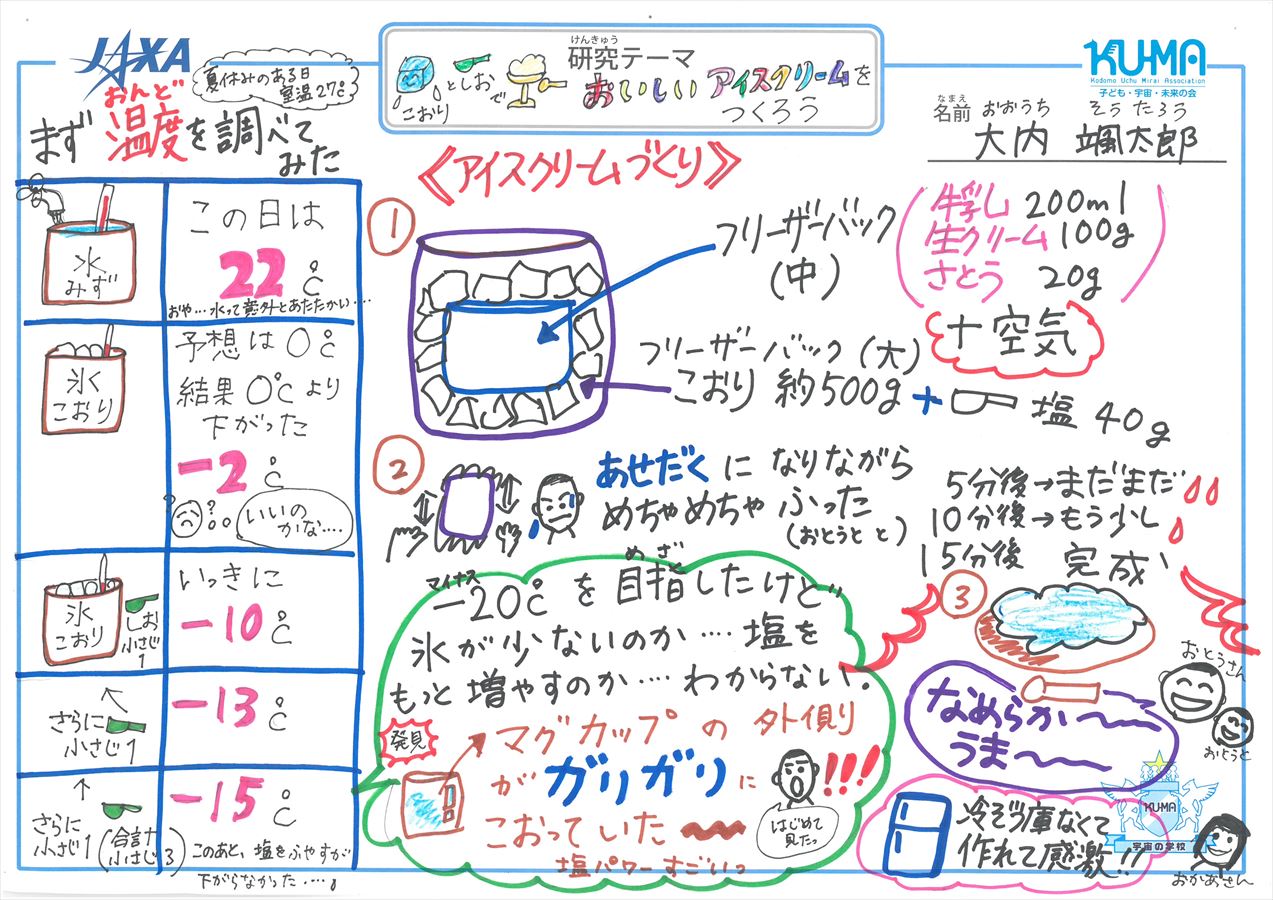 JAXA
夏休みのある日
室温27℃
けんきゅう
研究テーマ
こおり
としおで
おいしいアイスクリームを
つくろう
KUMA
Kodomo Uchu Mirai Association
子ども・宇宙・未来の会
なまえ おおうち そうたろう
名前 大内 颯太郎
おんど
まず温度を調べて
みた
水
みず
この日は
22℃
おや…水って意外とあたたかい‥‥
氷
こおり
予想は0℃
結果0℃より
下がった
-2℃
いいの
かな‥‥
氷
こおり
しお
小さじ
1
いっきに
-10℃
さらに
小さじ1
-13℃
さらに
小さじ1(合計
小さじ3)
-15℃
このあと、塩をふやすが
下がらなかった‥‥。
《アイスクリームづくり》
①
フリーザーバック
(中)
牛乳 200ml
生クリーム 100g
さとう 20g
+空気
フリーザーバック(大)
こおり 約500g + 塩 40g
②
あせだくになりながら
めちゃめちゃふった
(おとうとと)
5分後→まだまだ
10分後→もう少し
15分後 完成
マイナス めざ
-20℃を目指したけど
氷が少ないのか‥‥塩を
もっと増やすのか‥‥わからない.
発見
マグカップの外側り
がガリガリに
こおっていた
!!!
はじめて
見たっ
塩パワーすごいっ
③
おとうさん
おとうと
なめらか〜
うま〜
冷ぞう庫なくて
作れて感激!!
おかあさん
KUMA
宇宙の学校